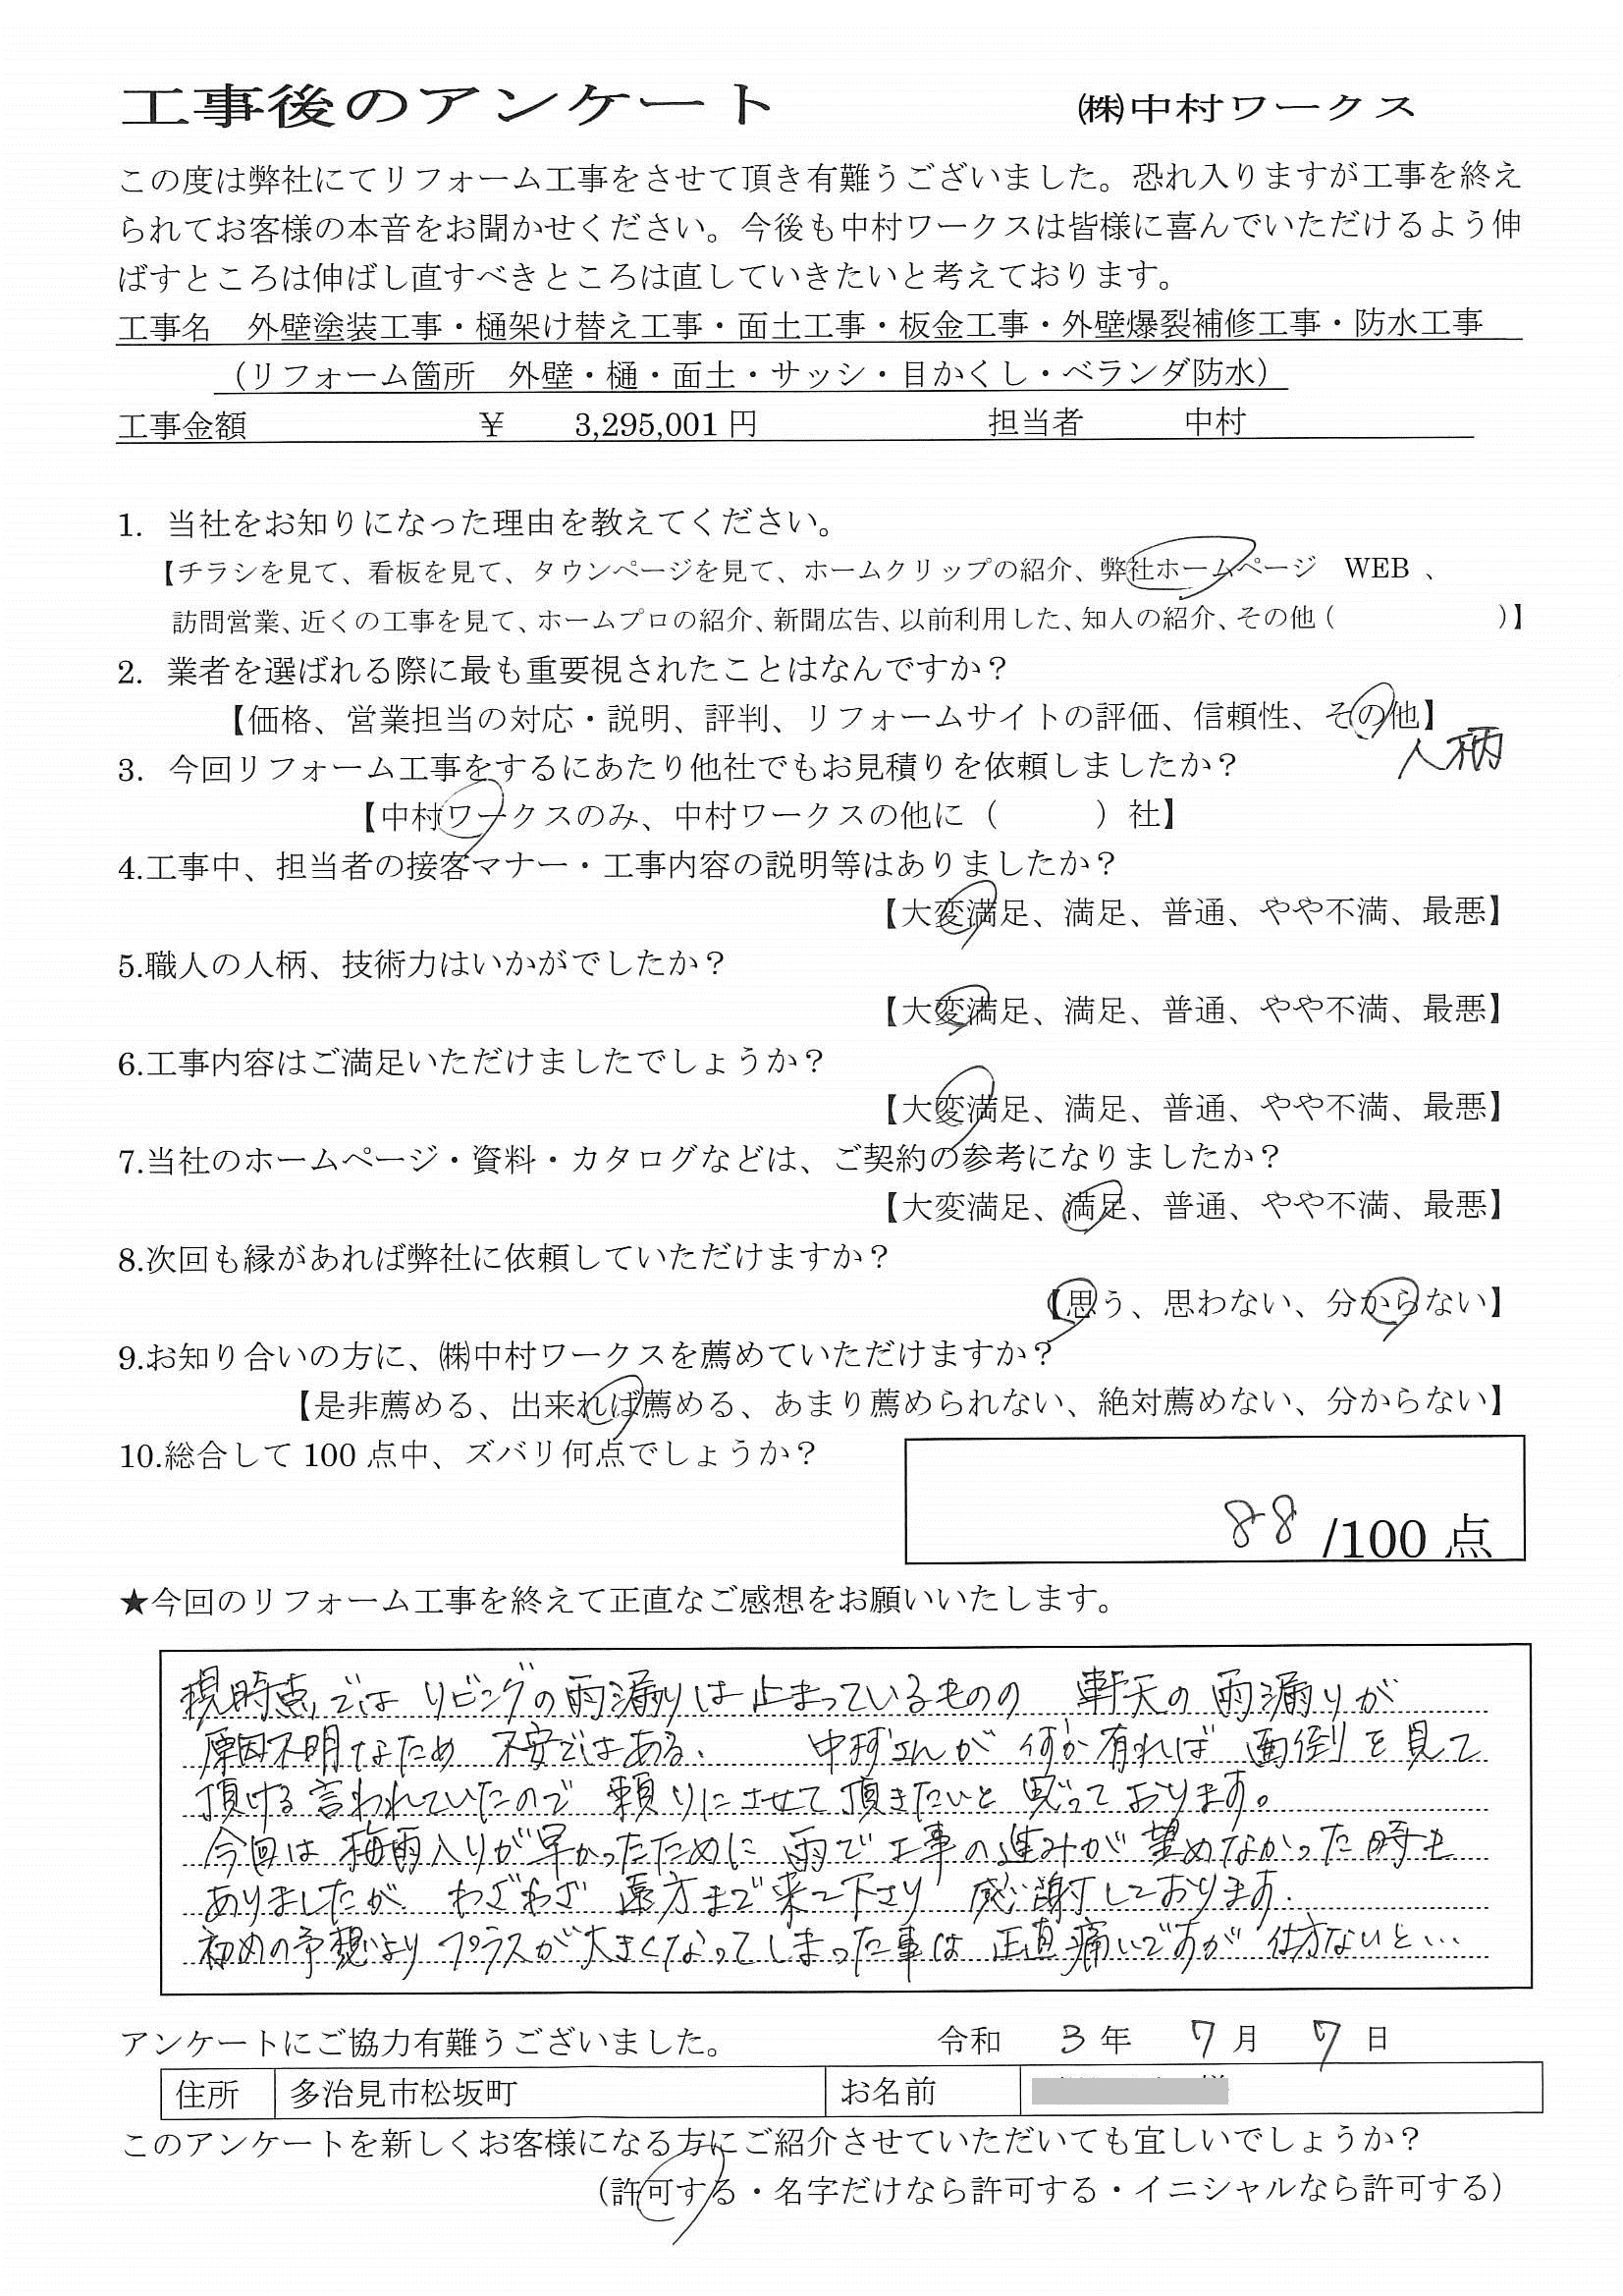 工事後のアンケート　㈱中村ワークス
この度は弊社にてリフォーム工事をさせて頂き有難うございました。恐れ入りますが工事を終え
られてお客様の本音をお聞かせください。今後も中村ワークスは皆様に喜んでいただけるよう伸
ばすところは伸ばし直すべきところは直していきたいと考えております。
工事名　外壁塗装工事・樋架け替え工事・面土工事・板金工事・外壁爆裂補修工事・防水工事
（リフォーム箇所　外壁・樋・面土・サッシ・目かくし・ベランダ防水）
工事金額　￥　3,295,001円　担当者　中村
1.　当社をお知りになった理由を教えてください。
【チラシを見て、看板を見て、タウンページを見て、ホームクリップの紹介、弊社ホームページ　WEB　、
訪問営業、近くの工事を見て、ホームプロの紹介、新聞広告、以前利用した、知人の紹介、その他（　　　）】
2.　業者を選ばれる際に最も重要視されたことはなんですか？
【価格、営業担当の対応・説明、評判、リフォームサイトの評価、信頼性、その他】
人柄
3.　今回リフォーム工事をするにあたり他社でもお見積りを依頼しましたか？
【中村ワークスのみ、中村ワークスの他に（　　　）社】
4.工事中、担当者の接客マナー・工事内容の説明等はありましたか？
【大変満足、満足、普通、やや不満、最悪】
5.職人の人柄、技術力はいかがでしたか？
【大変満足、満足、普通、やや不満、最悪】
6.工事内容はご満足いただけましたでしょうか？
【大変満足、満足、普通、やや不満、最悪】
7.当社のホームページ・資料・カタログなどは、ご契約の参考になりましたか？
【大変満足、満足、普通、やや不満、最悪】
8.次回も縁があれば弊社に依頼していただけますか？
【思う、思わない、分からない】
9.お知り合いの方に、㈱中村ワークスを薦めていただけますか？
【是非薦める、出来れば薦める、あまり薦められない、絶対薦めない、分からない】
10.総合して100点中、ズバリ何点でしょうか？
88 /100点
★今回のリフォーム工事を終えて正直なご感想をお願いいたします。
現時点ではリビングの雨漏りは止まっているものの　軒天の雨漏りが
原因不明なため　不安ではある．　中村さんが　何か有れば　面倒を見て
頂ける言われていたので　頼りにさせて頂きたいと　思っております。
今回は　梅雨入りが早かったために　雨で工事の進みが　望めなかった時も
ありましたが　わざわざ　遠方まで来て下さり　感謝しております．
初めの予想より　プラスが大きくなってしまった事は　正直痛いですが　仕方ないと…
アンケートにご協力有難うございました。　令和　3年　7月　7日
住所　多治見市松坂町　お名前　様
このアンケートを新しくお客様になる方にご紹介させていただいても宜しいでしょうか？
（許可する・名字だけなら許可する・イニシャルなら許可する）